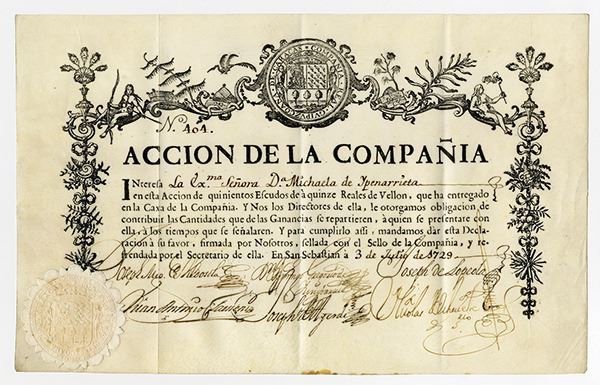 N.º 404.
ACCION DE LA COMPAÑIA
INteresa La Ex.ma Señora D.a Michaela de Ypenarrieta
en esta Accion de quinientos Escudos de à quinze Reales de Vellon, que ha entregado
en la Caxa de la Compañia. Y Nos los Directores de ella, le otorgamos obligacion de
contribuir las Cantidades que de las Ganancias se repartieren, à quien se presentare con
ella, à los tiempos que se señalaren. Y para cumplirlo assi, mandamos dàr esta Decla-
racion à su favor, firmada por Nosotros, sellada con el Sello de la Compañia, y re-
frendada por el Secretario de ella. En San Sebastian à 3 de Julio de 1729.
Joseph de Lopeola
Juan Antonio Claessens Joseph
Nicolas